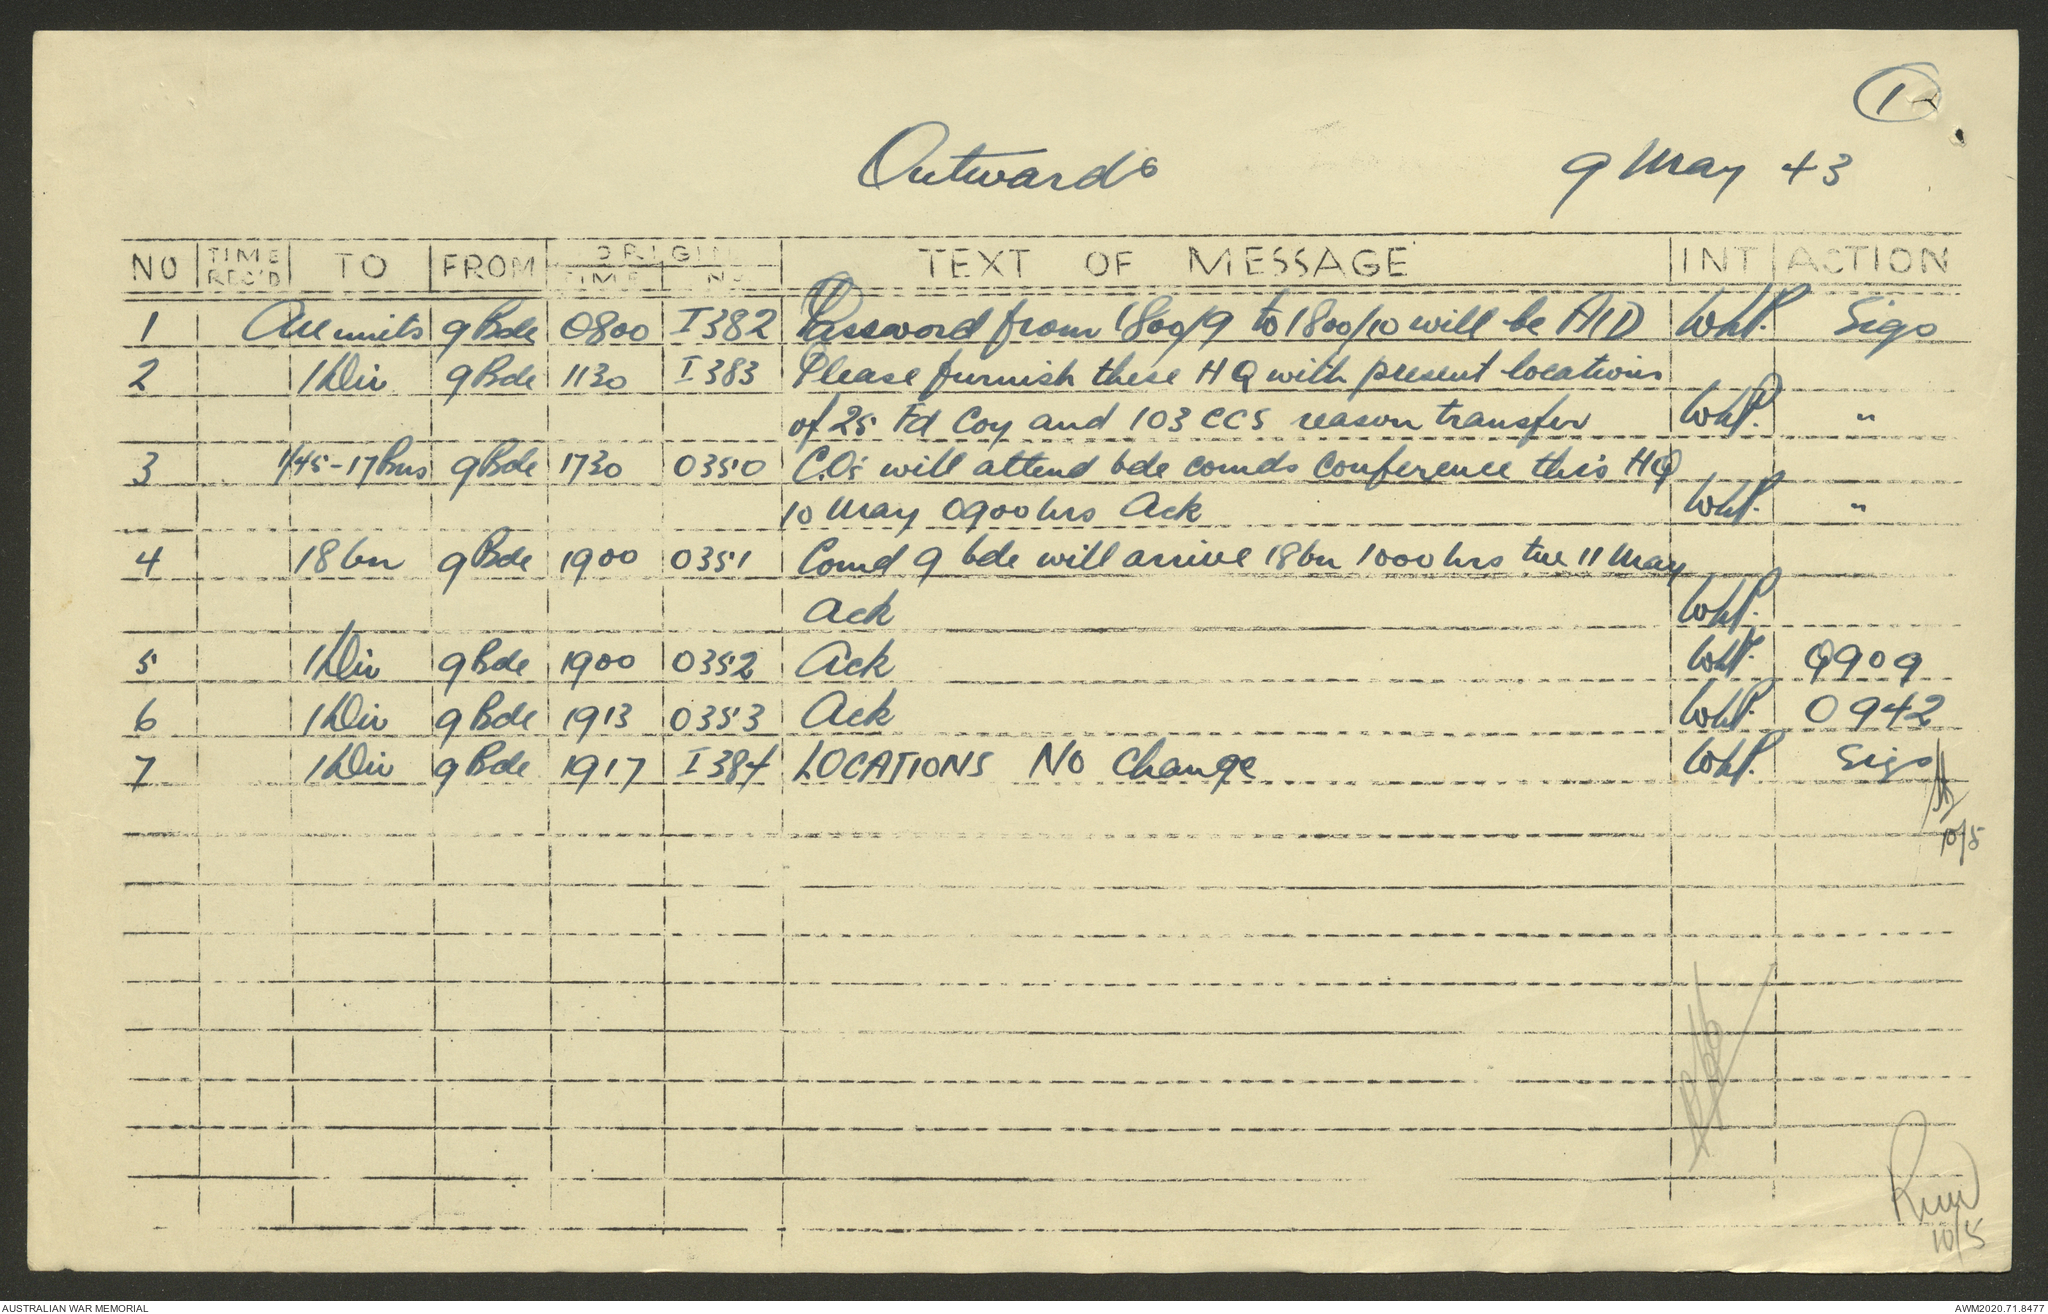 1
Outwards 9 May 43
NO TIME REC'D TO FROM ORIGIN TIME NO TEXT OF MESSAGE INT ACTION
1 All units 9 Bde 0800 I382 Password from 1800/9 to 1800/10 will be AID WhP. Sigs
2 1 Div 9 Bde 1130 I383 Please furnish these HQ with present locations
of 25 Fd Coy and 103 CCS reason transfer WhP. "
3 1/45-17 Bns 9 Bde 1730 0350 C.O's will attend bde comds conference this HQ
10 May 0900 hrs Ack WhP. "
4 18 bn 9 Bde 1900 0351 Comd 9 bde will arrive 18 bn 1000 hrs tue 11 May
Ack WhP.
5 1 Div 9 Bde 1900 0352 Ack WhP. Q909
6 1 Div 9 Bde 1913 0353 Ack WhP. O942
7 1 Div 9 Bde 1917 I384 LOCATIONS NO Change WhP. Sigs
10/5
10/5
AUSTRALIAN WAR MEMORIAL AWM2020.71.8477